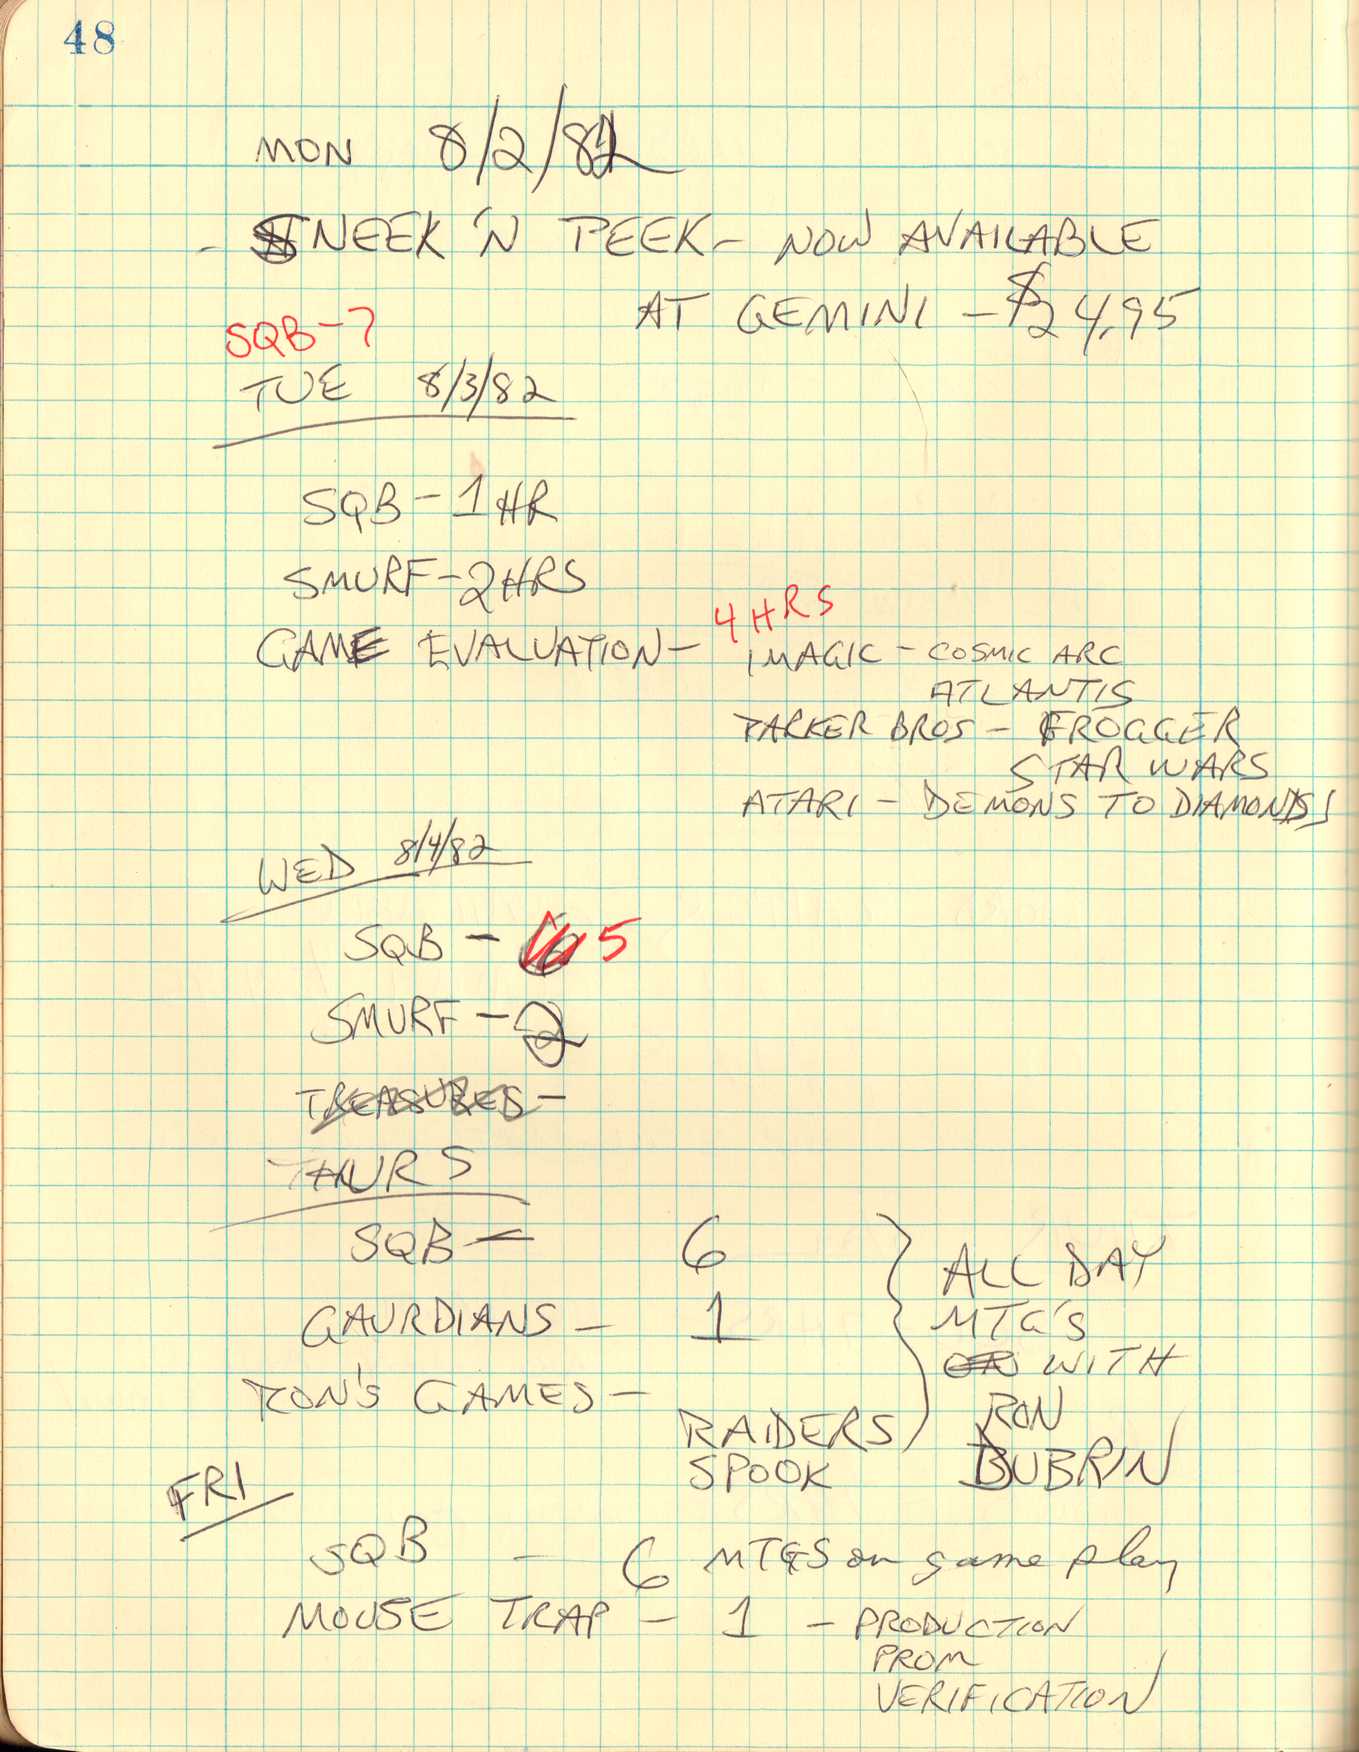 48
MON 8/2/82
- SNEEK 'N PEEK - NOW AVAILABLE
AT GEMINI - $24.95
SQB-7
TUE 8/3/82
SQB - 1 HR
SMURF - 2 HRS
4 HRS
GAME EVALUATION - IMAGIC - COSMIC ARC
ATLANTIS
PARKER BROS - FROGGER
STAR WARS
ATARI - DEMONS TO DIAMONDS
WED 8/4/82
SQB - 5
SMURF - 2
TREASURES -
THURS
SQB - 6 ALL DAY
GAURDIANS - 1 MTG'S
WITH
RON'S GAMES - RON
RAIDERS DUBRIN
SPOOK
FRI
SQB - 6 MTGS on game play
MOUSE TRAP - 1 - PRODUCTION
PROM
VERIFICATION